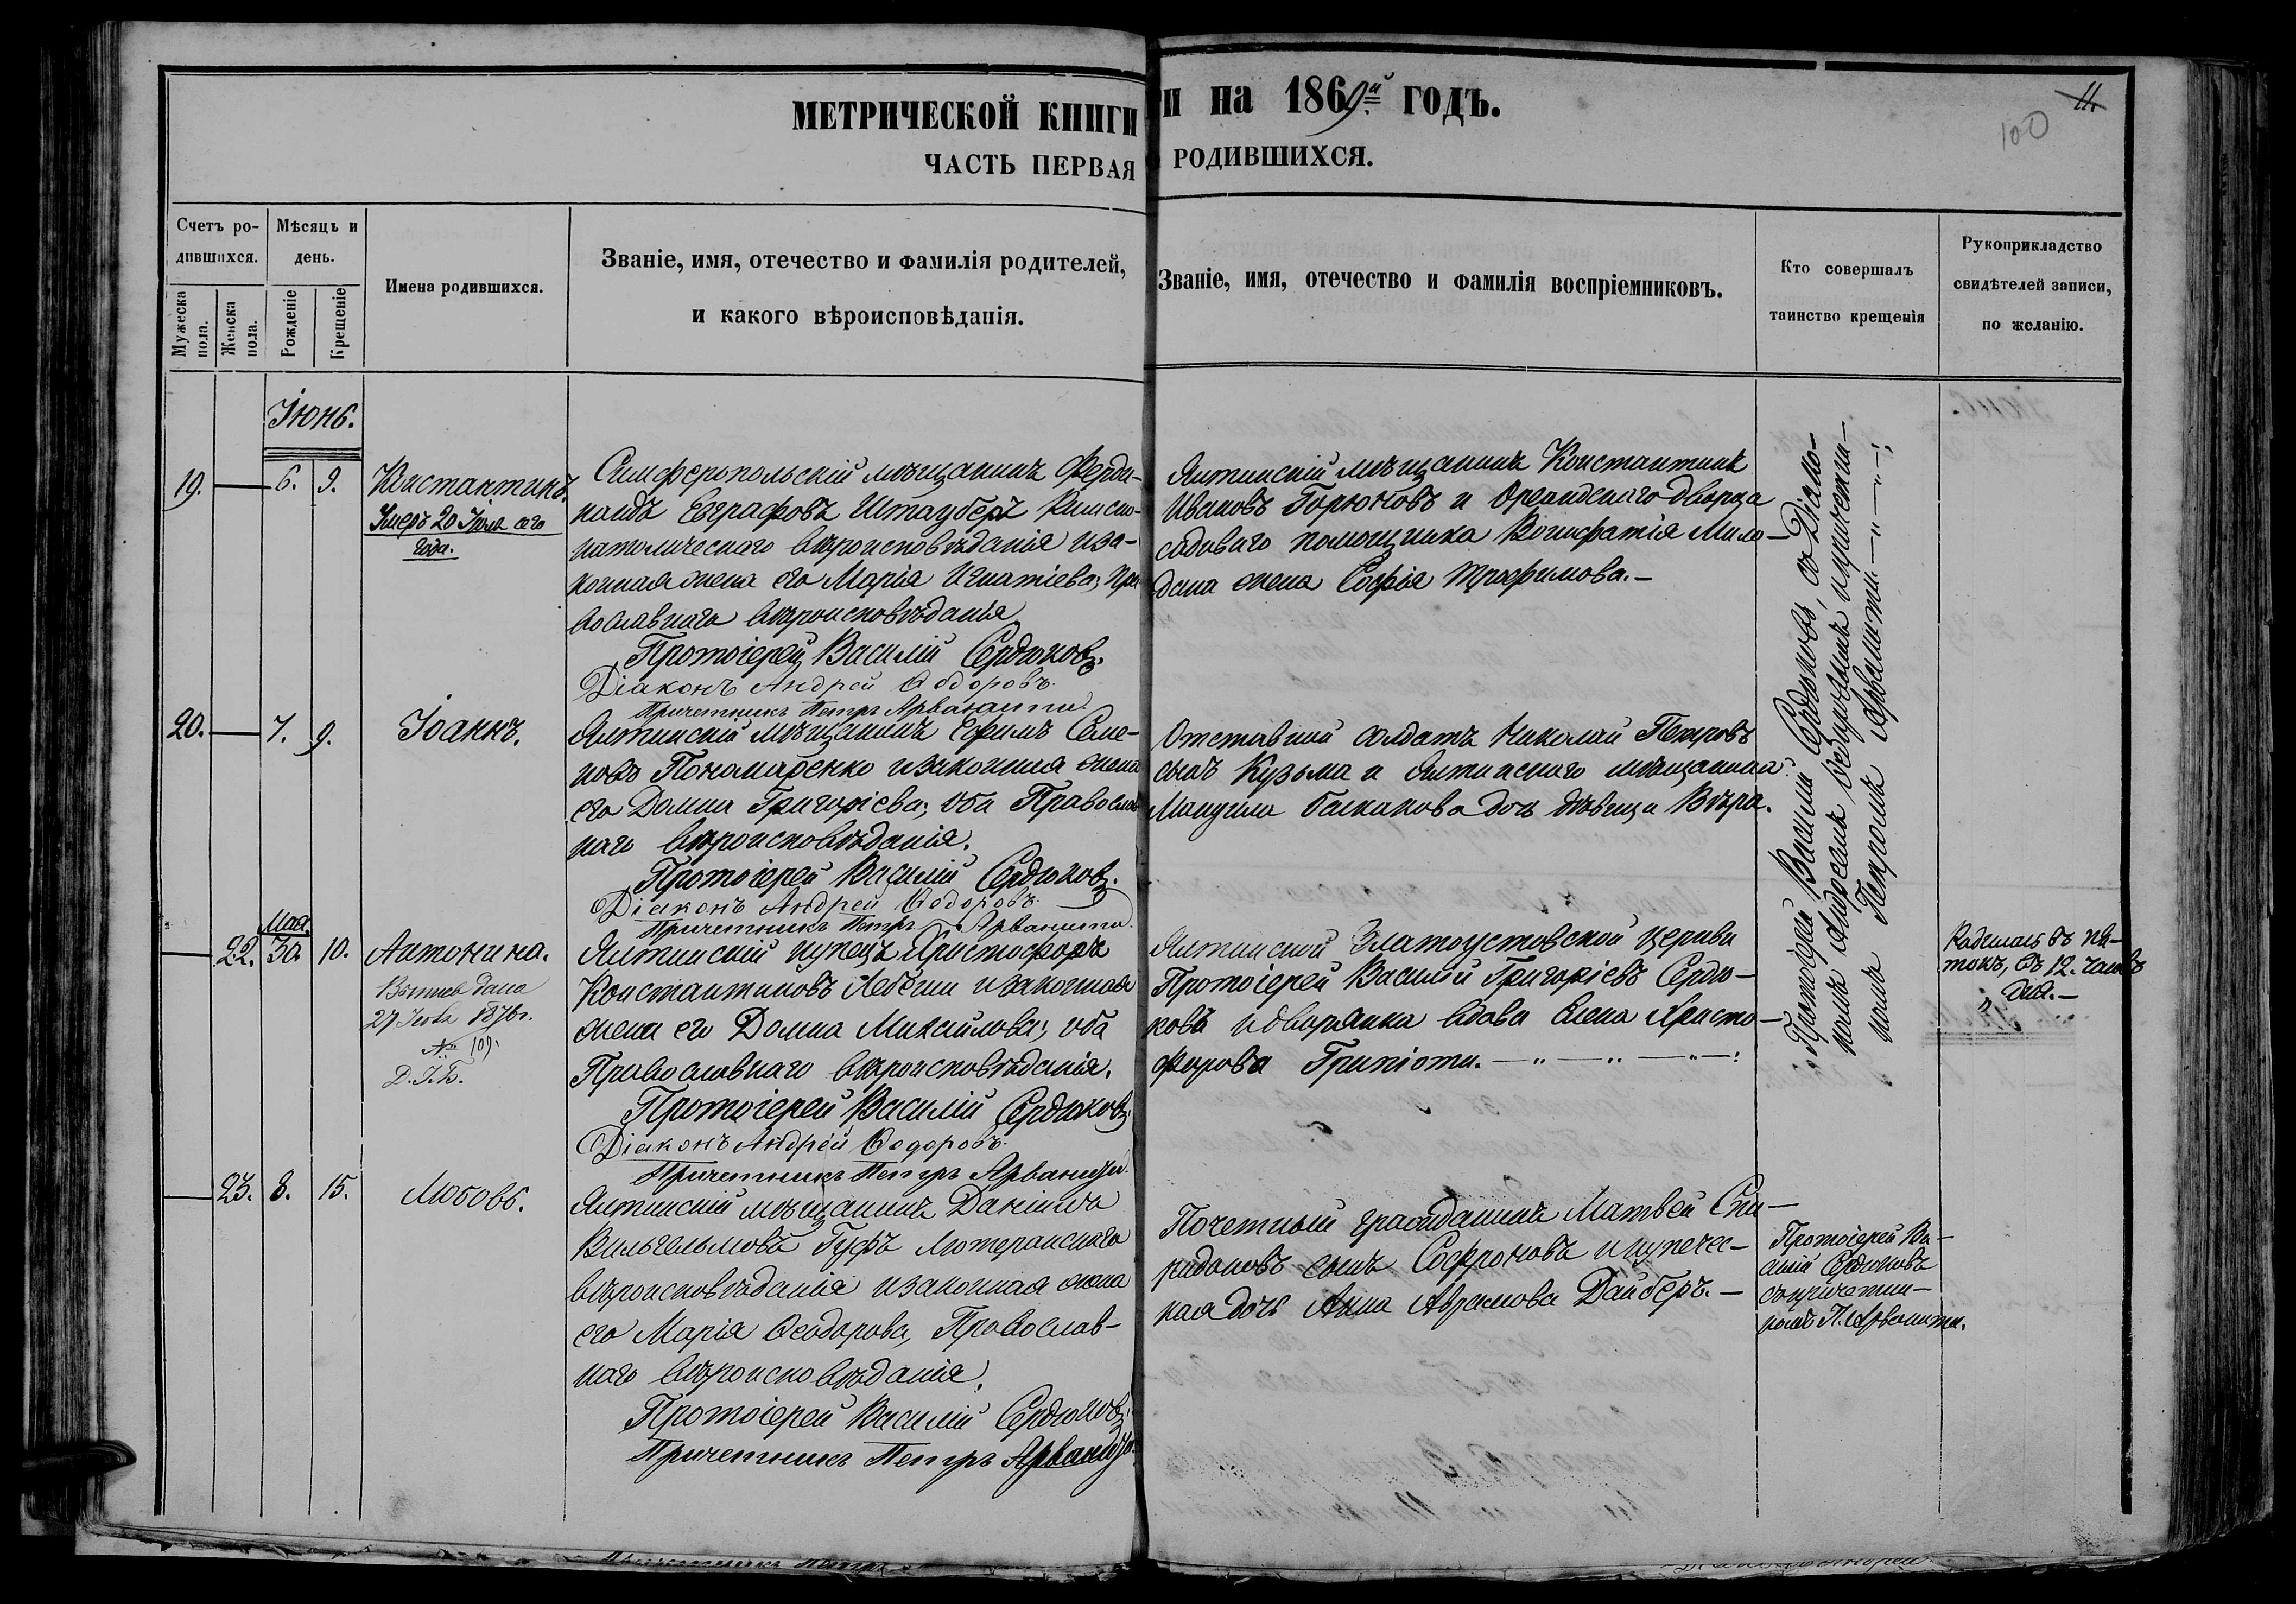 МЕТРИЧЕСКОЙ КНИГИ
ЧАСТЬ ПЕРВАЯ
и на 1869й годъ.
РОДИВШИХСЯ.
11.
100
Счетъ ро-
дившихся.
Мужеска пола.
Женска пола.
Мѣсяць и
день.
Рожденіе
Крещеніе
Имена родившихся.
Званіе, имя, отечество и фамилія родителей,
и какого вѣроисповѣданія.
Званіе, имя, отечество и фамилія воспріемниковъ.
Кто совершалъ
таинство крещенія
Рукоприкладство
свидѣтелей записи,
по желанію.
Іюнь.
19. 6. 9.
Константинъ.
Умеръ 20 Іюля сего
года.
Симферопольскій мѣщанинъ Ферди-
нандъ Евграфовъ Штауберъ Римско-
католическаго вѣроисповѣданія иза-
конная жена его Марія Игнатіева, пра-
вославнаго вѣроисповѣданія
Протоіерей Василій Сердюковъ.
Діаконъ Андрей Ѳеодоровъ.
Причетникъ Петръ Арванити
Ялтинскій мѣщанинъ Константинъ
Ивановъ Горюновъ и Ореандскаго дворца
садоваго помощника Вонифатія Мило-
дана жена Софія Трофимова.—
20. 7. 9.
Іоаннъ.
Ялтинскій мѣщанинъ Ефимъ Семе-
новъ Пономаренко изаконная жена
его Домна Григоріева, оба Православ
наго вѣроисповѣданія.
Протоіерей Василій Сердюковъ.
Діаконъ Андрей Ѳеодоровъ.
Причетникъ Петръ Арванити.
Отставный солдатъ Николай Петровъ
сынъ Кузьма и Ялтинскаго мѣщанина
Мануила дочь дѣвица Вѣра.
Протоіерей Василій Сердюковъ, съ Діако-
номъ Андреемъ Ѳеодоровымъ и причетни-
комъ Петромъ Арванити.—„—„—;
Мая.
22. 30. 10.
Антонина.
дана
27 1876г.
№ 109.
Ялтинскій купецъ Христофоръ
Константиновъ изаконная
жена его Домна Михайлова, оба
Православнаго вѣроисповѣданія.
Протоіерей Василій Сердюковъ.
Діаконъ Андрей Ѳеодоровъ.
Причетникъ Петръ Арванити.
Ялтинской Златоустовской церкви
Протоіерей Василій Григоріевъ Сердю-
ковъ и дворянка вдова Елена Христо-
форова Грипіоти.—„—„—„—:
Родилась въ пя-
токъ, въ 12. часовъ
дня.—
23. 8. 15.
Любовь.
Ялтинскій мѣщанинъ Даніилъ
Вильгельмовъ Гуфъ Лютеранскаго
вѣроисповѣданія изаконная жена
его Марія Ѳеодорова, Православ-
наго вѣроисповѣданія.
Протоіерей Василій Сердюковъ.
Причетникъ Петръ Арванити.
Почетный гражданинъ Матвѣй Спи-
ридоновъ сынъ Софроновъ и купечес-
кая дочь Анна Аврамова Дайберъ.—
Протоіерей Ва-
силій Сердюковъ
съ причетни-
комъ П. Арванити.